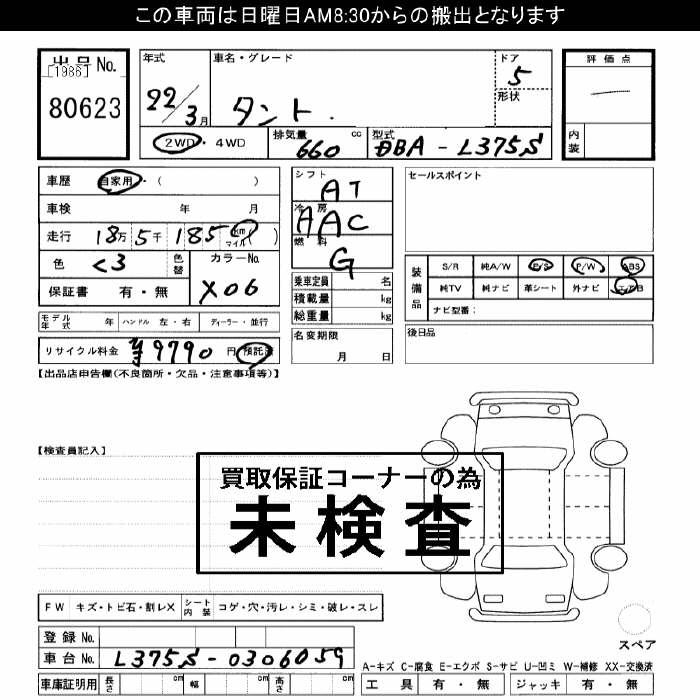 この車両は日曜日AM8:30からの搬出となります
出品No.
[1986]
80623
年式
22/3月
車名・グレード
タント
ドア
5
形状
評価点
内装
2WD・4WD
排気量
660 cc
型式
DBA-L375S
車歴
自家用・( )
車検 年 月
走行 18万5千185 km マイル( )
色 くろ
色替
カラーNo.
X06
保証書 有・無
シフト
AT
冷房
AAC
燃料
G
乗車定員 名
積載量 kg
総重量 kg
名変期限
月 日
セールスポイント
装備品
S/R 純A/W P/S P/W ABS
純TV 純ナビ 革シート 外ナビ エアB
ナビ型番:
後日品
モデル年式 年 ハンドル 左・右 ディーラー・並行
リサイクル料金 ¥9790円 預託済
【出品店申告欄(不良箇所・欠品・注意事項等)】
【検査員記入】
買取保証コーナーの為
未検査
FW キズ・トビ石・割レX シート内装 コゲ・穴・汚レ・シミ・破レ・スレ
登録No.
車台No. L375S-0306059
車庫証明用 長さ cm 幅 cm 高さ cm
スペア
A-キズ C-腐食 E-エクボ S-サビ U-凹ミ W-補修 XX-交換済
工具 有・無 ジャッキ 有・無